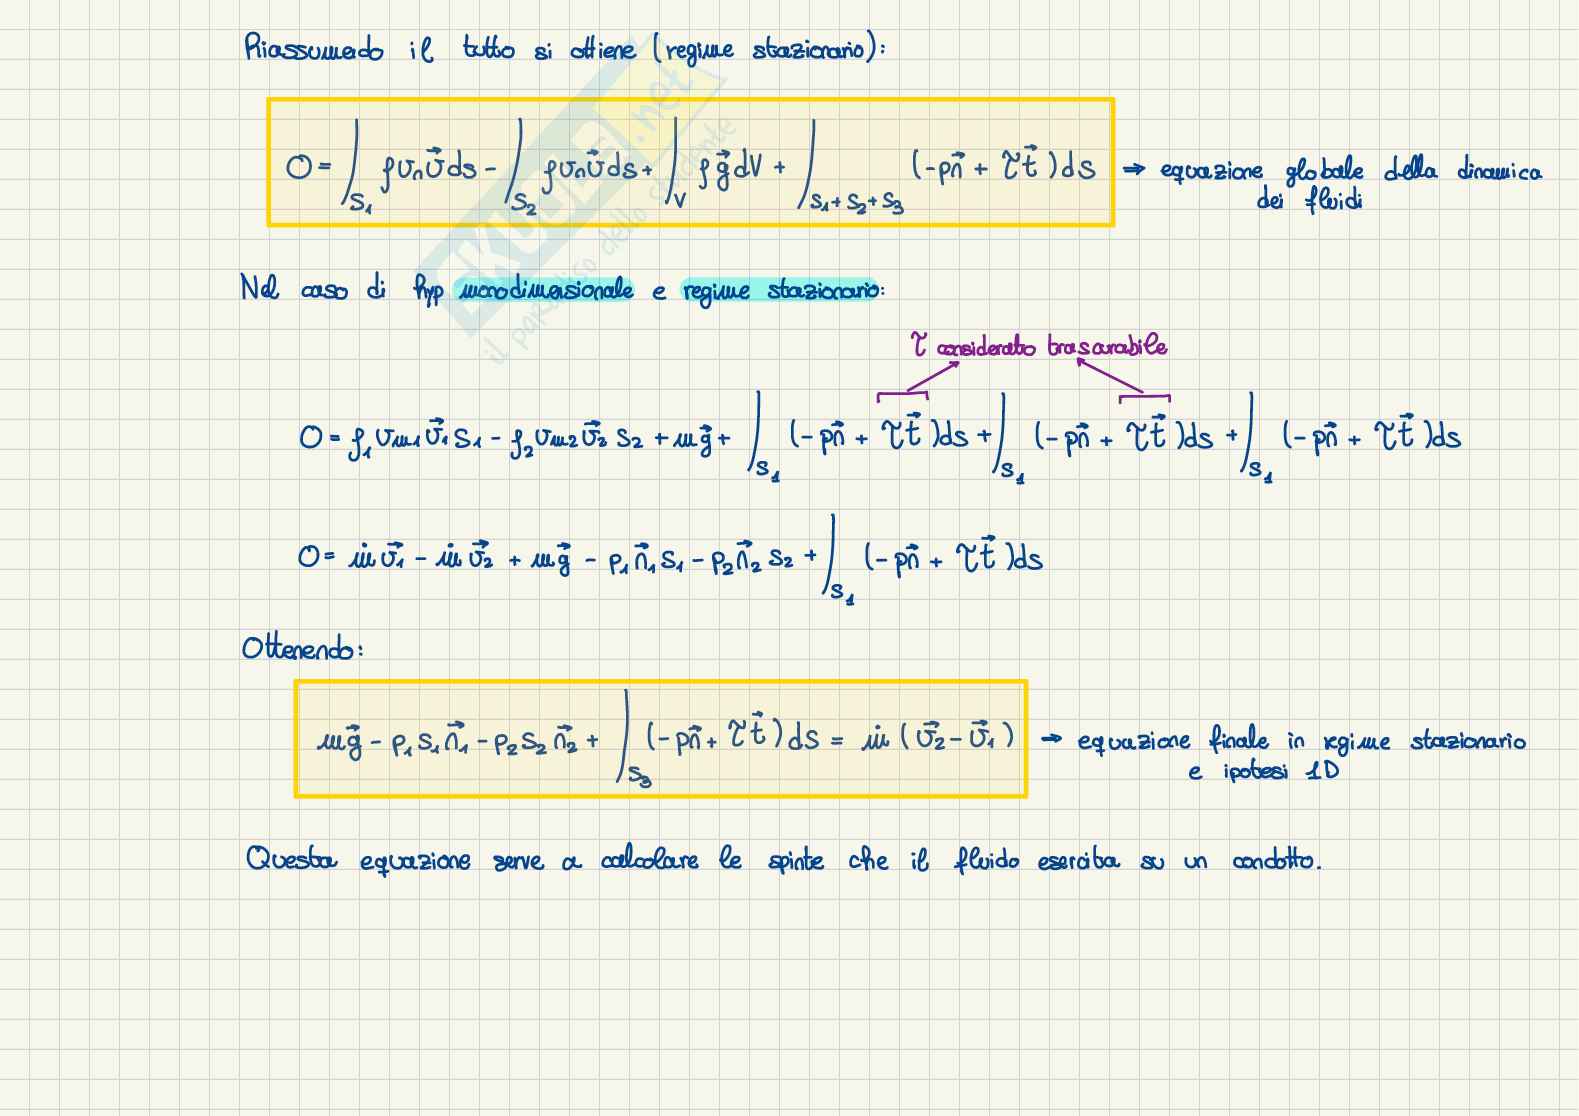 Riassumendo il tutto si ottiene (regime stazionario):
0 = ∫_S1 ρ v_n v⃗ ds - ∫_S2 ρ v_n v⃗ ds + ∫_V ρ g⃗ dV + ∫_S1+S2+S3 (-p n⃗ + τ t⃗ ) ds ⇒ equazione globale della dinamica
dei fluidi
Nel caso di hyp monodimensionale e regime stazionario:
τ considerato trascurabile
0 = ρ_1 v_m1 v⃗_1 S_1 - ρ_2 v_m2 v⃗_2 S_2 + m g⃗ + ∫_S1 (-p n⃗ + τ t⃗ ) ds + ∫_S1 (-p n⃗ + τ t⃗ ) ds + ∫_S1 (-p n⃗ + τ t⃗ ) ds
0 = ṁ v⃗_1 - ṁ v⃗_2 + m g⃗ - p_1 n⃗_1 S_1 - p_2 n⃗_2 S_2 + ∫_S1 (-p n⃗ + τ t⃗ ) ds
Ottenendo:
m g⃗ - p_1 S_1 n⃗_1 - p_2 S_2 n⃗_2 + ∫_S3 (-p n⃗ + τ t⃗ ) dS = ṁ ( v⃗_2 - v⃗_1 ) ⇒ equazione finale in regime stazionario
e ipotesi 1D
Questa equazione serve a calcolare le spinte che il fluido esercita su un condotto.
SKUOLA.net
il paradiso dello studente